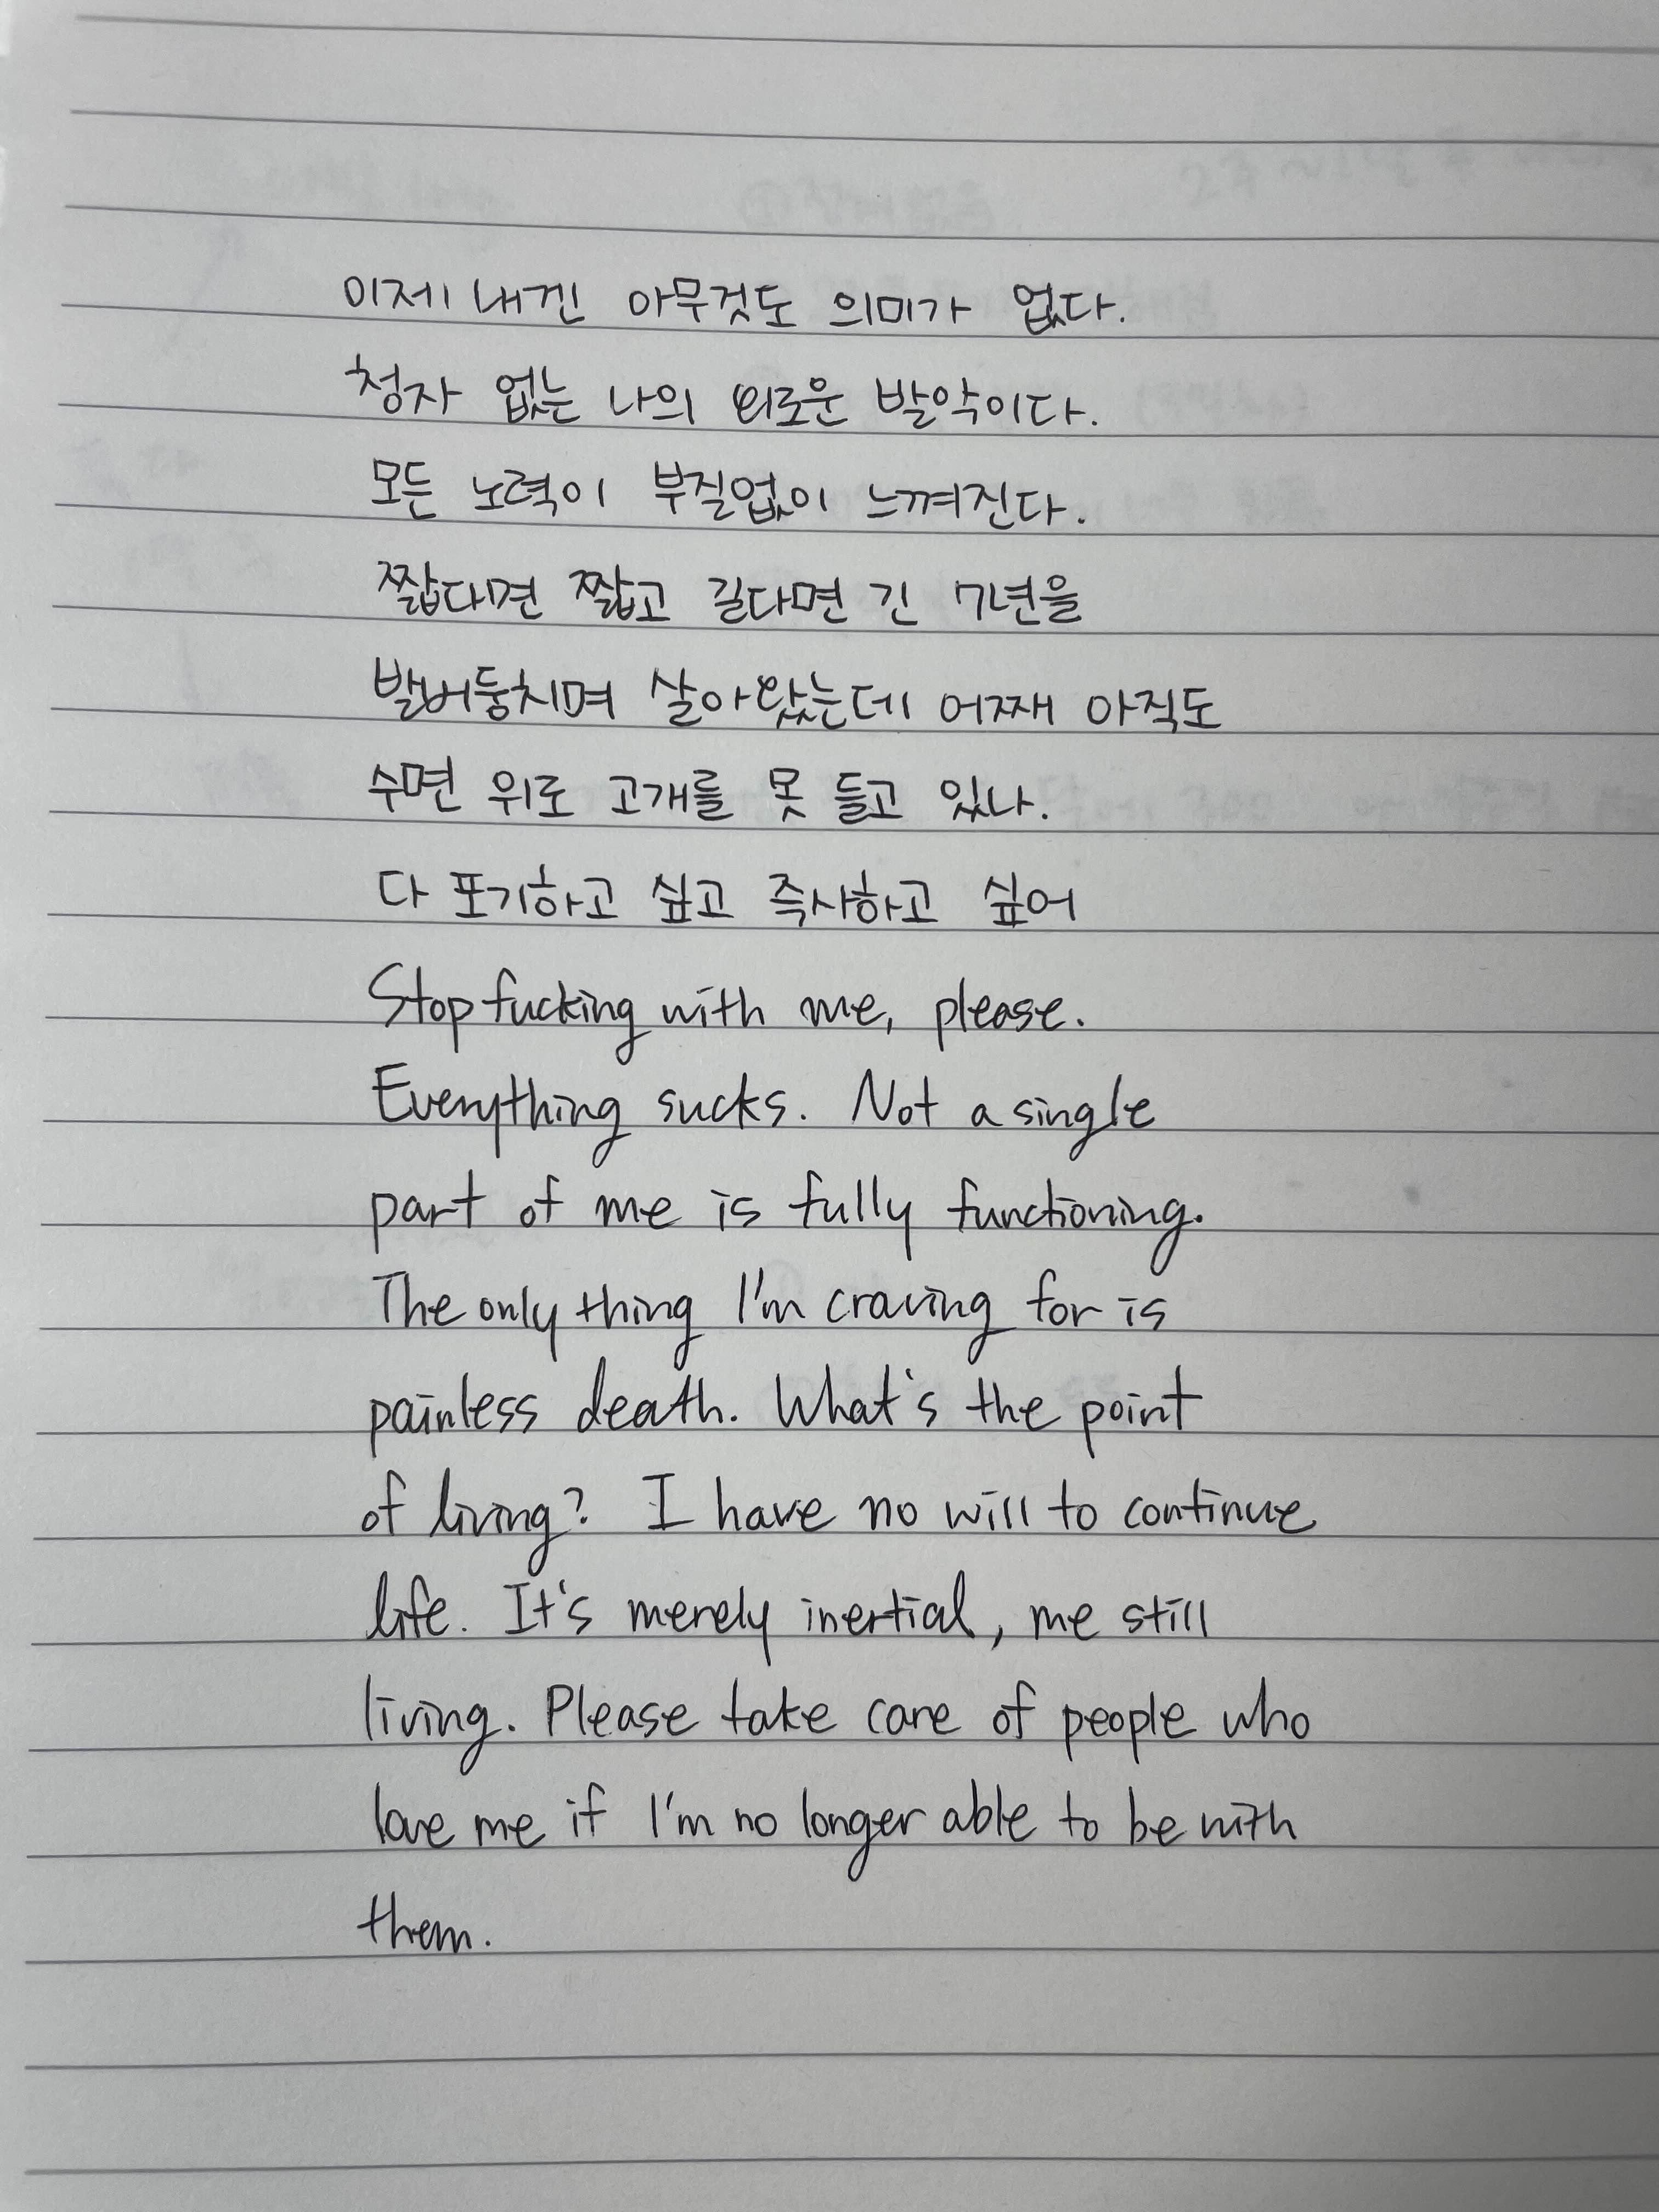 이제 내겐 아무것도 의미가 없다.
청자 없는 나의 외로운 발악이다.
모든 노력이 부질없이 느껴진다.
짧다면 짧고 길다면 긴 7년을
발버둥치며 살아왔는데 어째 아직도
수면 위로 고개를 못 들고 있나.
다 포기하고 싶고 즉사하고 싶어
Stop fucking with me, please.
Everything sucks. Not a single
part of me is fully functioning.
The only thing I'm craving for is
painless death. What's the point
of living? I have no will to continue
life. It's merely inertial, me still
living. Please take care of people who
love me if I'm no longer able to be with
them.